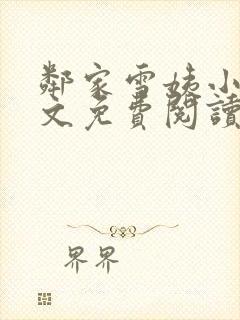 鄰家雪姨小
文免費閱讀
界界